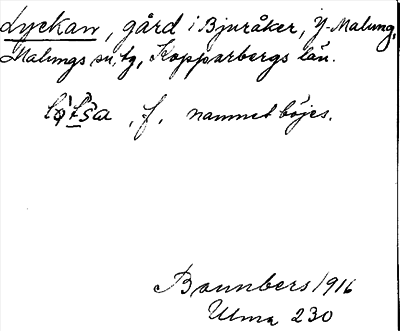 Lyckan, gård i Bjuråker, Y. Malung,
Malungs sn, tg, Kopparbergs län.
f. namnet böjes.
1916
Ulma 230